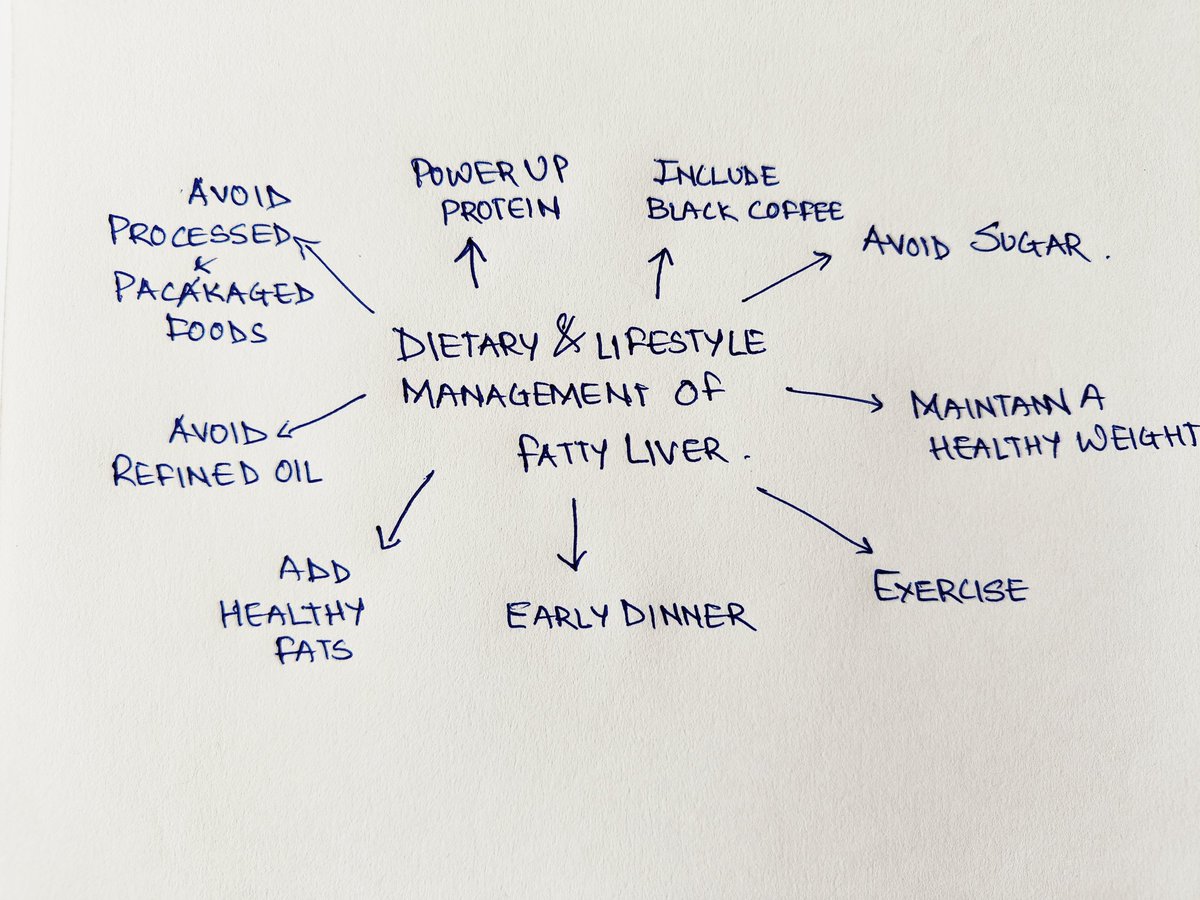 POWER UP
PROTEIN
INCLUDE
BLACK COFFEE
AVOID
PROCESSED
&
PACAKAGED
FOODS
AVOID SUGAR.
DIETARY & LIFESTYLE
MANAGEMENT OF
FATTY LIVER.
AVOID
REFINED OIL
MAINTAIN A
HEALTHY WEIGHT
ADD
HEALTHY
FATS
EARLY DINNER
EXERCISE